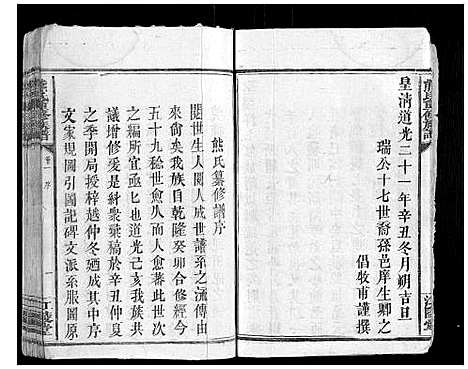 皇清道光二十一年辛丑冬月朔吉旦
瑞公十七世裔孫邑庠生卿之
倡牧甫謹撰
熊氏纂修譜序
閱世生人閱人成世譜系之流傳由
來尚矣我族自乾隆癸卯合修經今
五十九秘世愈久而人愈蕃此世次
議增修爰是糾衆彙稿於辛丑仲夏
之季開局授梓越仲冬廼成其中序
文家規圖引國記碑文派系服圖原
卷一 序
一